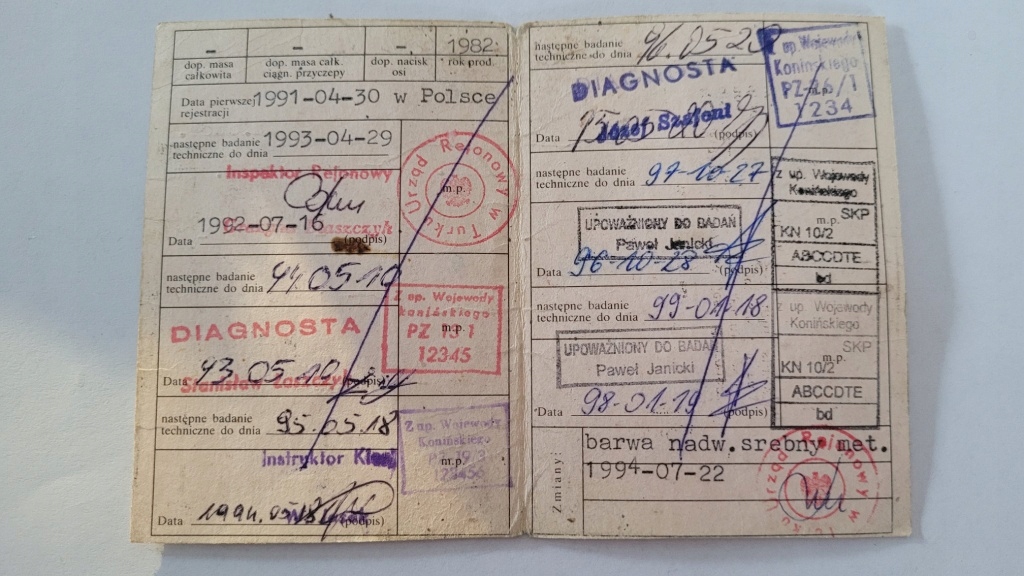 - - - 1982
dop. masa całkowita
dop. masa całk. ciągn. przyczepy
dop. nacisk osi
rok prod.
Data pierwszej rejestracji 1991-04-30 w Polsce
następne badanie techniczne do dnia 1993-04-29
Inspektor Rejonowy
1992-07-16
Data (podpis)
m.p.
Urząd Rejonowy w Turku
następne badanie techniczne do dnia 94.05.19
DIAGNOSTA
Data 93.05.19 (podpis)
Stanisław
Z up. Wojewody
konińskiego
PZ 13 1
m.p.
12345
następne badanie techniczne do dnia 95.05.18
Instruktor
Data 1994.05.18 (podpis)
Z up. Wojewody
Konińskiego
m.p.
następne badanie techniczne do dnia 96.05.2
DIAGNOSTA
Józef
Data (podpis)
z up. Wojewody
Konińskiego
m.p.
1234
następne badanie techniczne do dnia 97-10-27
UPOWAŻNIONY DO BADAŃ
Paweł Janicki
Data 96-10-28 (podpis)
z up. Wojewody
Konińskiego
m.p.
SKP
KN 10/2
ABCCDTE
bd
następne badanie techniczne do dnia 99-01-18
UPOWAŻNIONY DO BADAŃ
Paweł Janicki
Data 98-01-19 (podpis)
z up. Wojewody
Konińskiego
SKP
m.p.
KN 10/2
ABCCDTE
bd
Zmiany:
barwa nadw.srebny met.
1994-07-22
Urząd Rejonowy w Turku